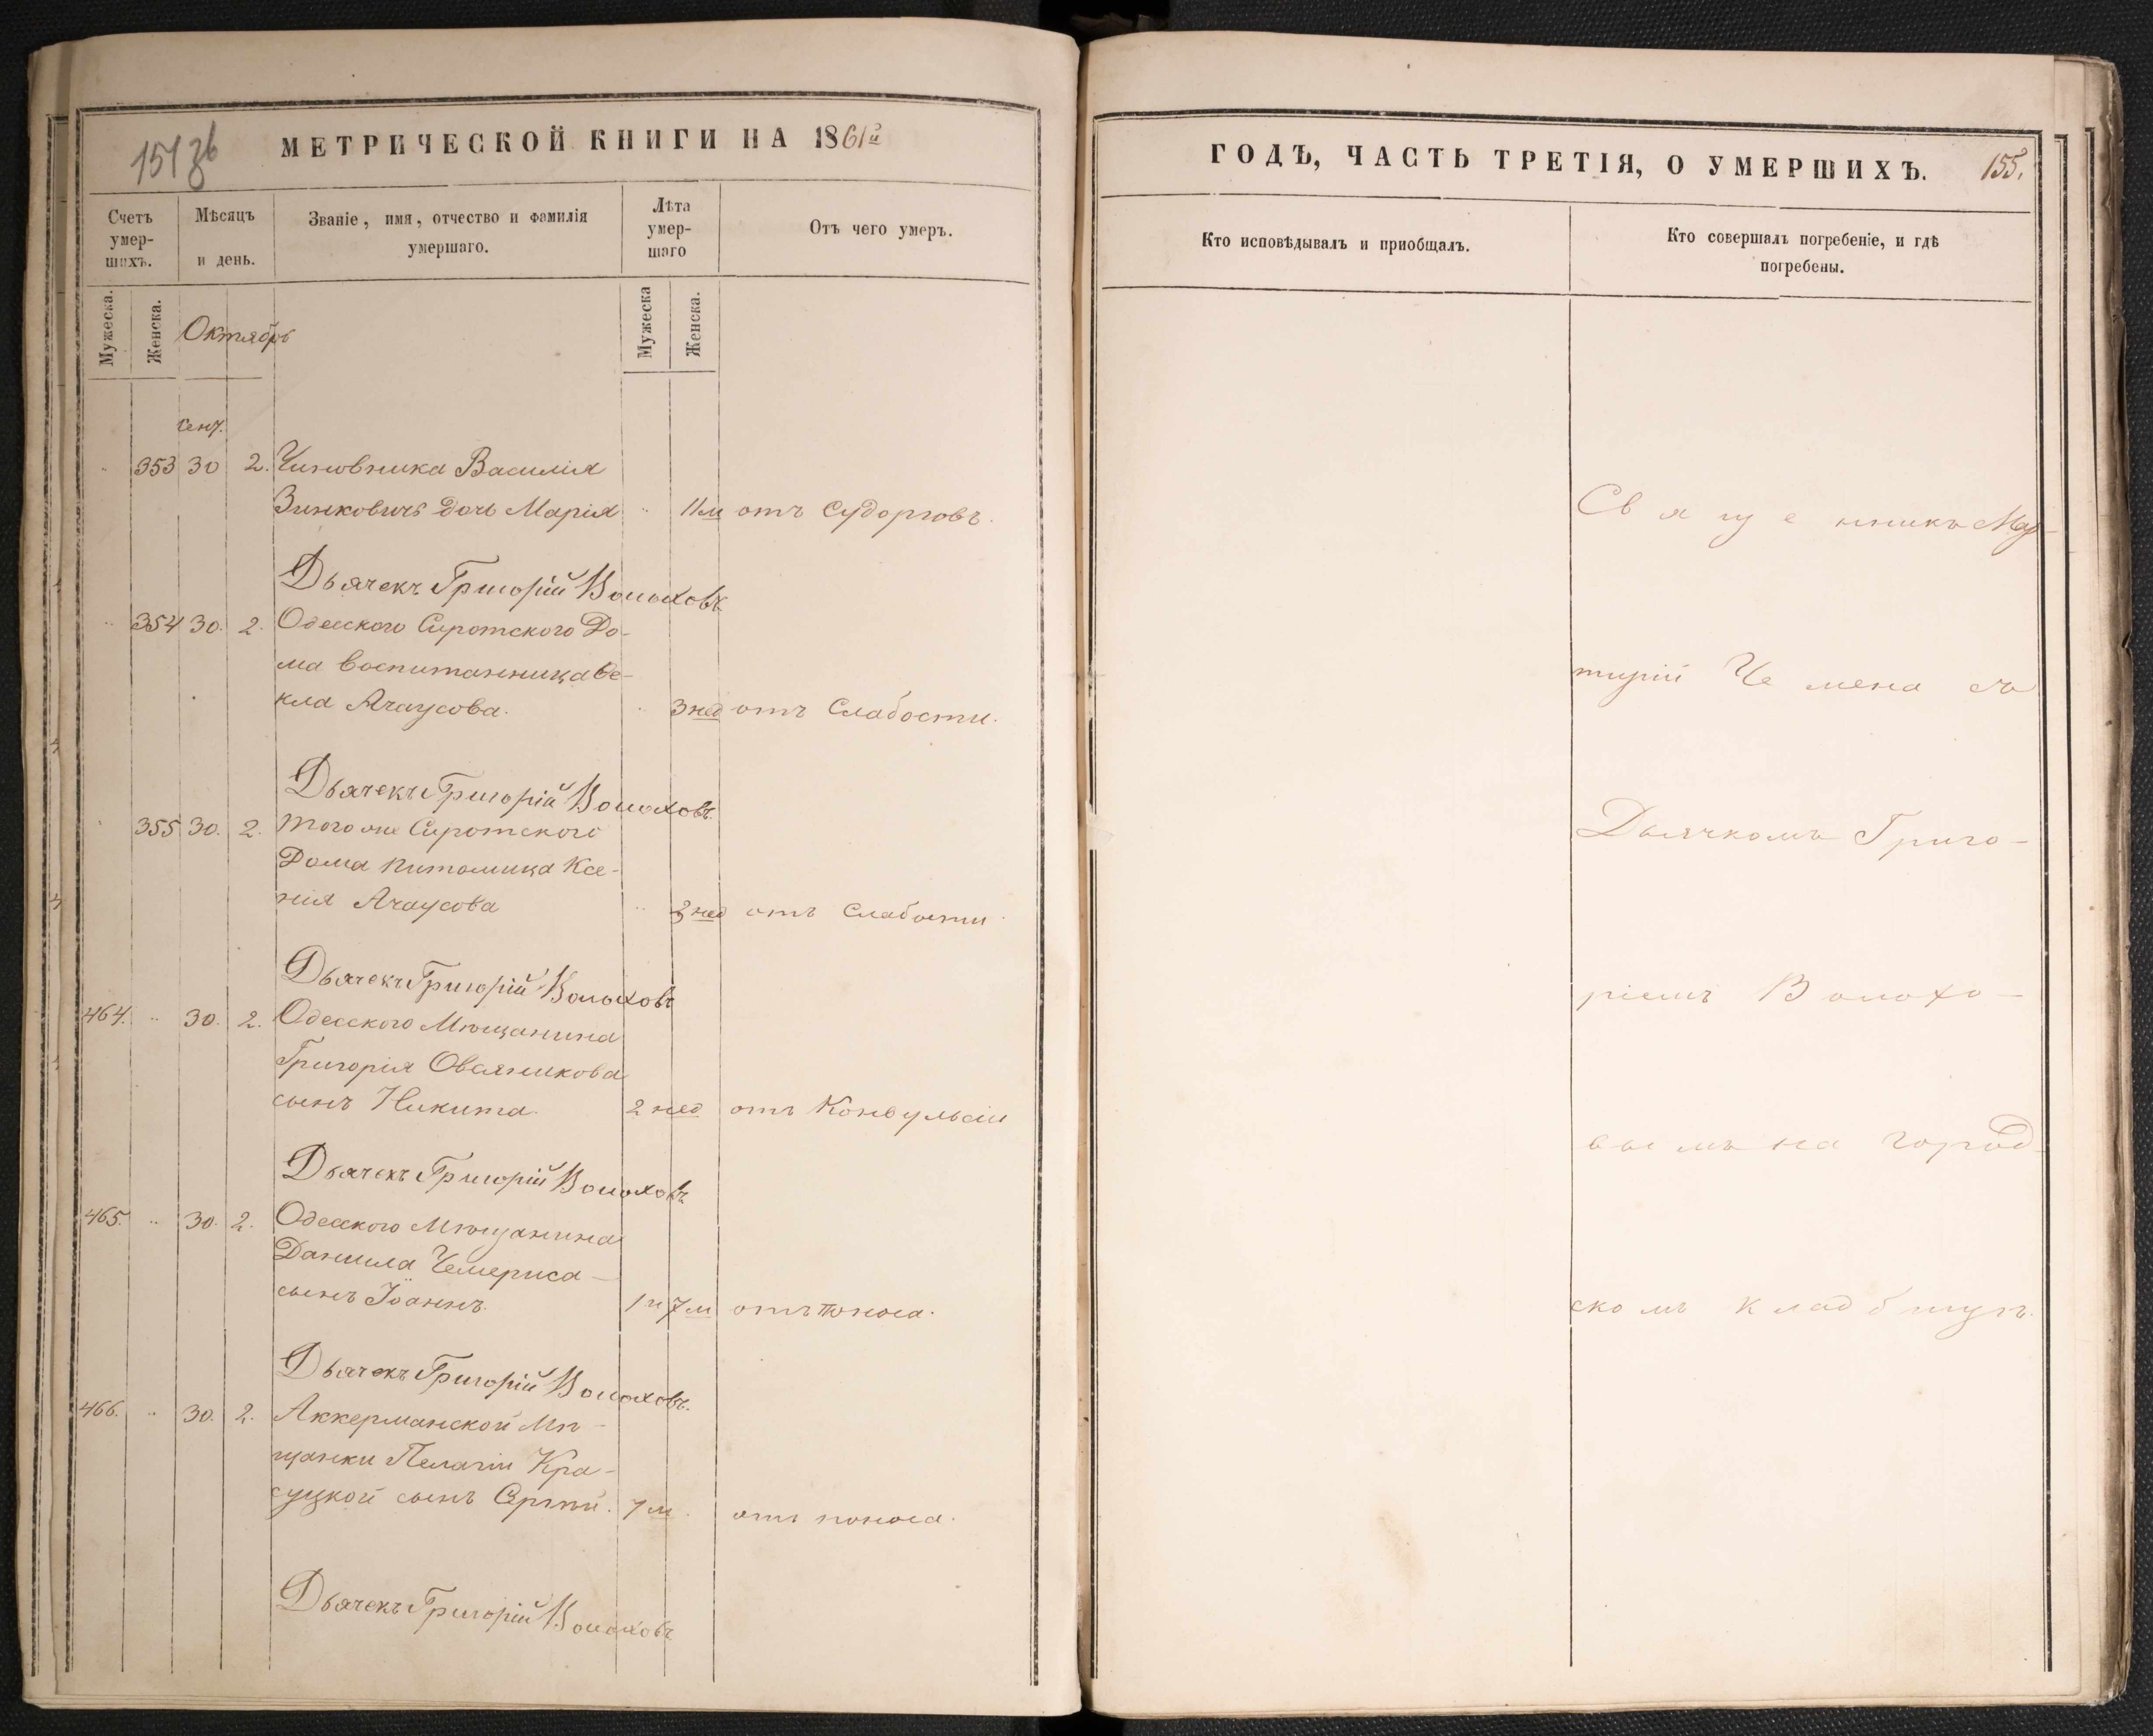 151 зв
МЕТРИЧЕСКОЙ КНИГИ НА 1861й
Счетъ умер-шихъ.
Мѣсяцъ и день.
Званіе, имя, отчество и фамилія умершаго.
Лѣта умер-шаго
Отъ чего умеръ.
Мужеска.
Женска.
Октябрь
Мужеска
Женска.
Сент.
353 30 2. Чиновника Василія
Зинковичъ дочь Марія 11 м отъ Судорговъ.
Дьячекъ Григорій Волоховъ
354 30. 2. Одесскаго Сиротскаго До-
ма воспитанница Ѳе-
кла Ачаусова. 3 нед отъ Слабости.
Дьячекъ Григорій Волоховъ.
355 30. 2. того же Сиротскаго
Дома питомица Ксе-
нія Ачаусова нед отъ Слабости
Дьячекъ Григорій Волоховъ
464. 30. 2. Одесскаго Мѣщанина
Григорія Овсяникова
сынъ Никита. 2 нед отъ Конвульсіи
Дьячекъ Григорій Волоховъ
465. 30. 2. Одесскаго Мѣщанина
Даніила Чемериса
сынъ Іоаннъ. 1 и 7 м отъ поноса.
Дьячекъ Григорій Волоховъ.
466. 30. 2. Аккерманской Мѣ-
щанки Пелагіи Кра-
суцкой сынъ Сергѣй. 7 м. отъ поноса.
Дьячекъ Григорій Волоховъ
ГОДЪ, ЧАСТЬ ТРЕТІЯ, О УМЕРШИХЪ. 155.
Кто исповѣдывалъ и приобщалъ.
Кто совершалъ погребеніе, и гдѣ погребены.
Священникъ Мар-
тирій Чемена съ
Дьячкомъ Григо-
ріемъ Волохо-
вымъ на город-
скомъ кладбищѣ.